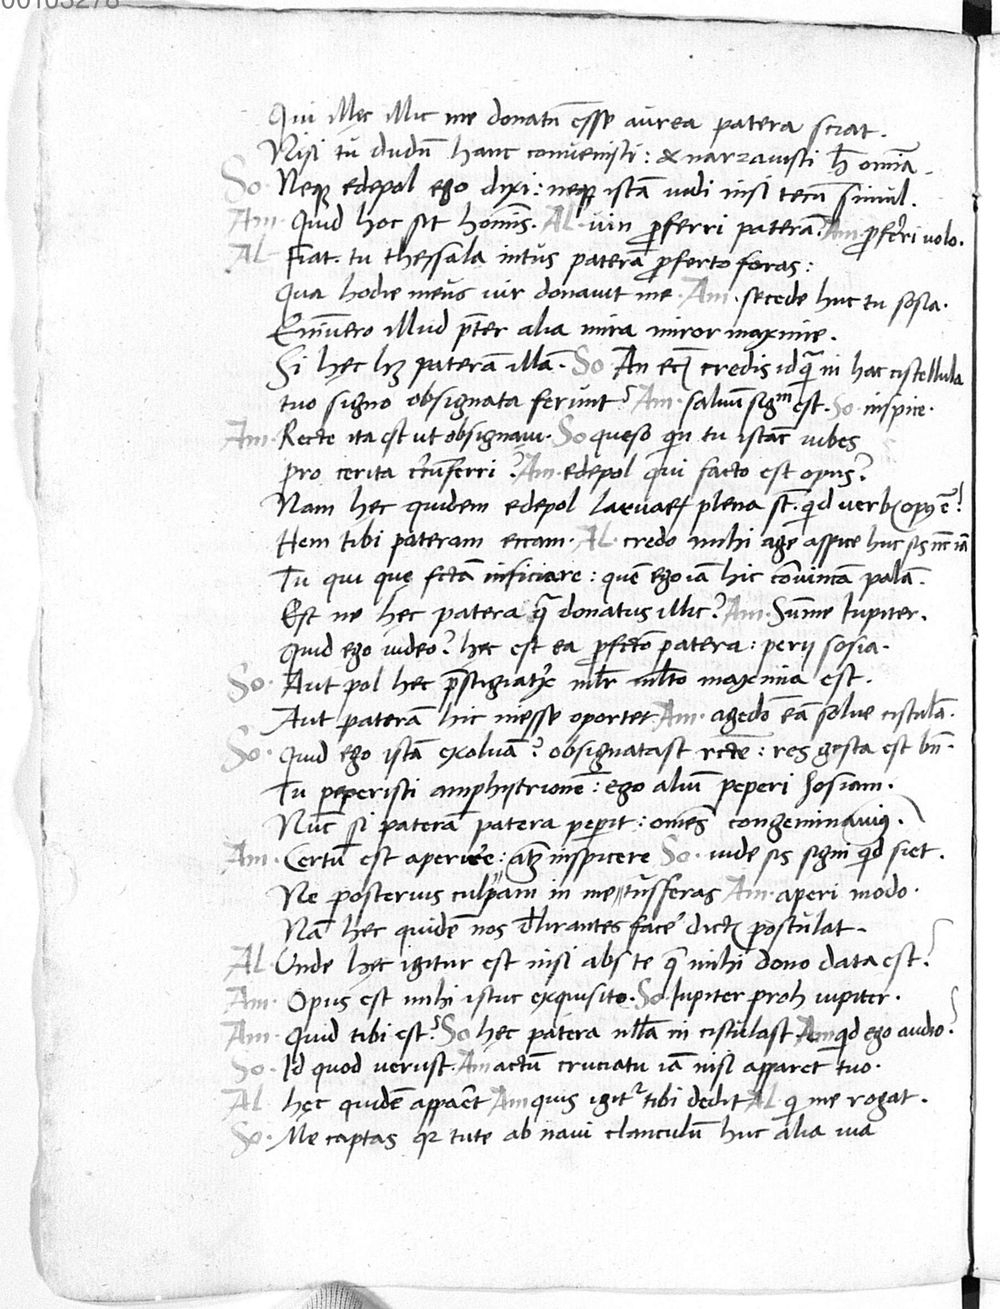 00105278
Qui illęc illic me donatū esse aurea patera sciat.
Nisi tu dudū hanc convenisti: & narravisti h̄ om̄ia.
So Neqʒ edepol ego dixi: neqʒ istā vidi nisi tecū simul.
Am. Quid hoc sit homīs. AL. vin ꝓferri paterā? Am. ꝓferri volo.
AL Fiat. tu thessala intus paterā ꝓferto foras:
Qua hodie meus vir donavit me. Am. secede huc tu sosia.
Enīmvero illud p̄ter alia mira miror maxime.
Si hęc hʒ paterā illā. So An etiā credis id q̄ in hac cistellula
tuo signo obsignata ferunt? Am. salvū sigᵐ est. So inspice.
Am. Recte ita est ut obsignavi. So queso qn tu istāc iubes
pro cerita c̄rūferri? Am. edepol qui facto est opus?
Nam hęc quidem edepol larvaꝝ plena st̄. qid verbis opꝰ ē?
Hem tibi pateram eccam. AL. credo mihi age aspice huc sis nūc iā
Tu qui que fctā inficiare: quē ego iā hic convincā palā.
Est ne hęc patera q̄ donatus illic? Am. Sūme Iupiter.
quid ego video? hęc est ea ꝓfcto patera: perij sosia.
So. Aut pol hec p̄stigiatrix ml̄r ml̄to maxima est.
Aut paterā hic inesse oportet. Am. agedō eā solve cistulā.
So. Quid ego istā exolvā? obsignatast rcte: res gesta est bn̄.
Tu peperisti amphytrionē: ego aliū peperi sosiam.
Nūc si paterā patera peperit: omēs congeminavimꝰ.
Am. Certū est aperire: atqʒ inspicere So. vide sis signi qid siet.
Ne posterius culpam in me // tu sferas Am. aperi modo.
Nā hęc quidē nos d̄lirantes facē dictis postulat.
AL Unde hęc igitur est nisi abs te q̄ mihi dono data est?
Am. Opus est mihi istuc exquisito. So. Iupiter proh iupiter.
Am. Quid tibi est? So hęc patera nlla in cistulast Am qid ego audio?
So. Id quod verust. Am actū cruciatu iā nisi apparet tuo.
AL hęc quidē appaēt Am quis igit᷑ tibi dedit AL. qi me rogat.
So. Me captas qʒ tute ab navi clanculū huc alia via